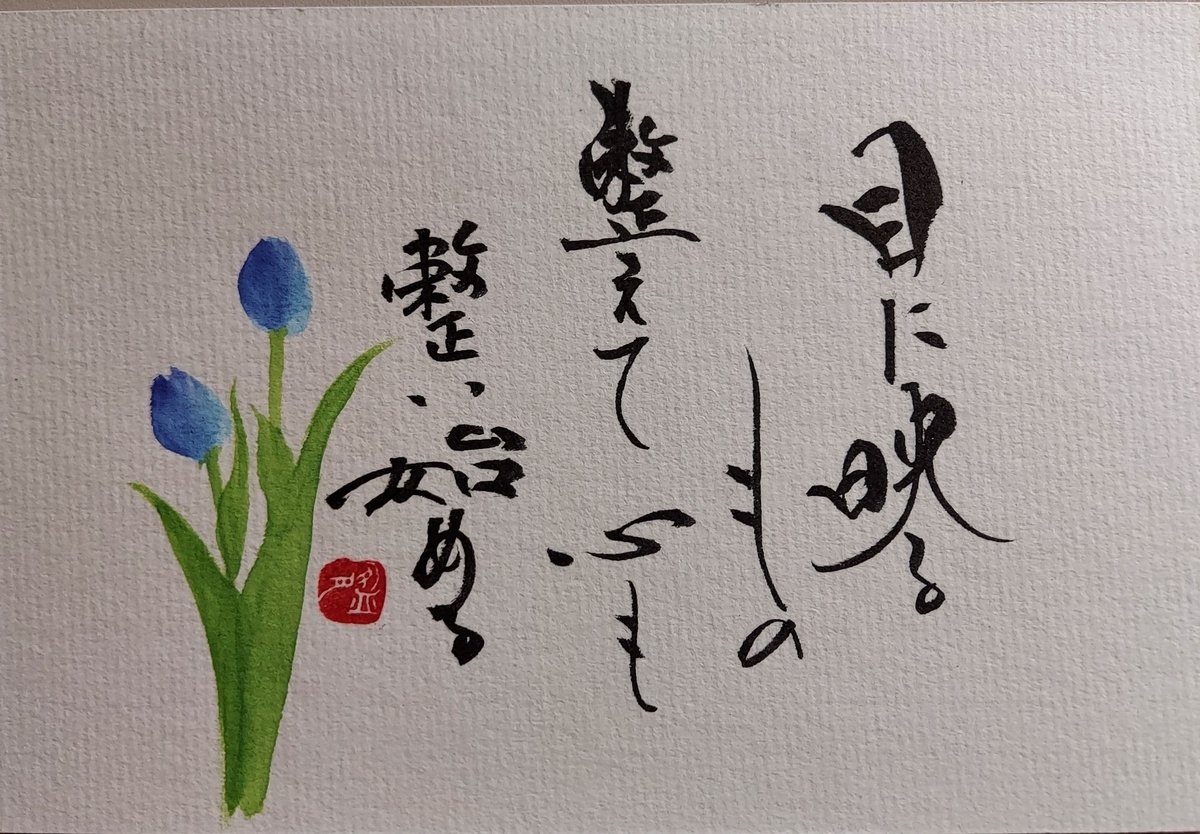 目に映る
もの
整えて心も
整い始める